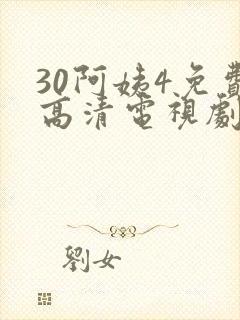 30阿姨4免費
高清電視劇
劉女